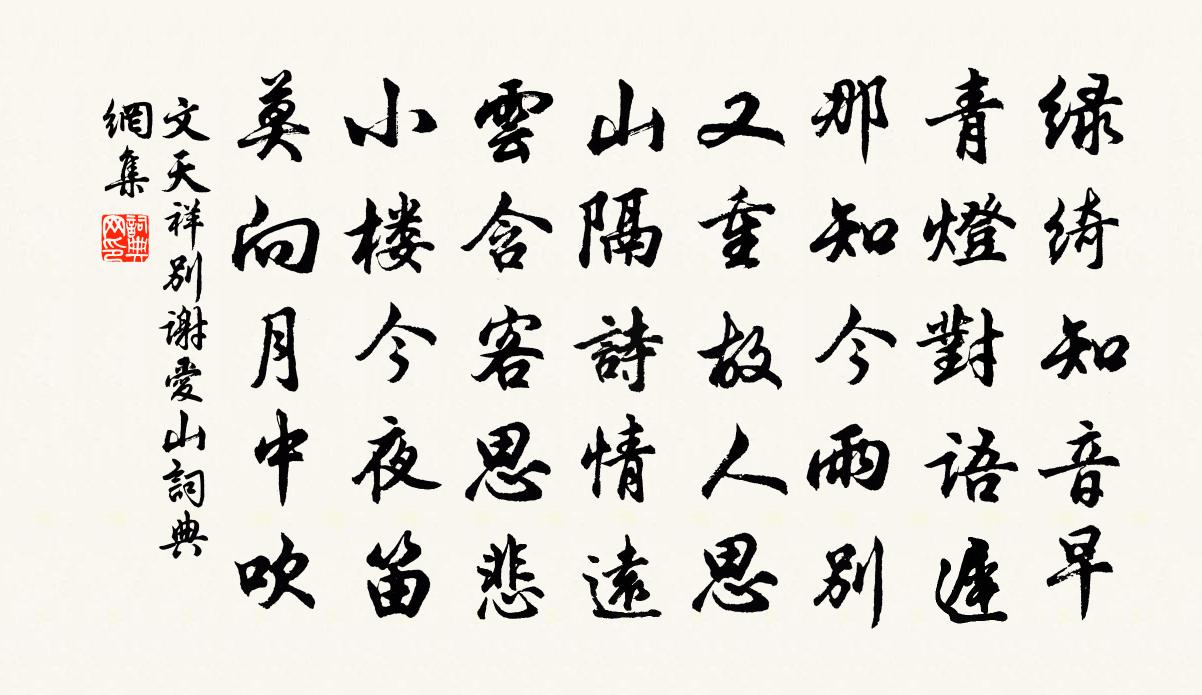 绿绮知音早
青燈對語遲
那知今雨别
又重故人思
山隔詩情遠
雲含客思悲
小楼今夜笛
莫向月中吹
文天祥别謝愛山詞典
網集
詞典
网印